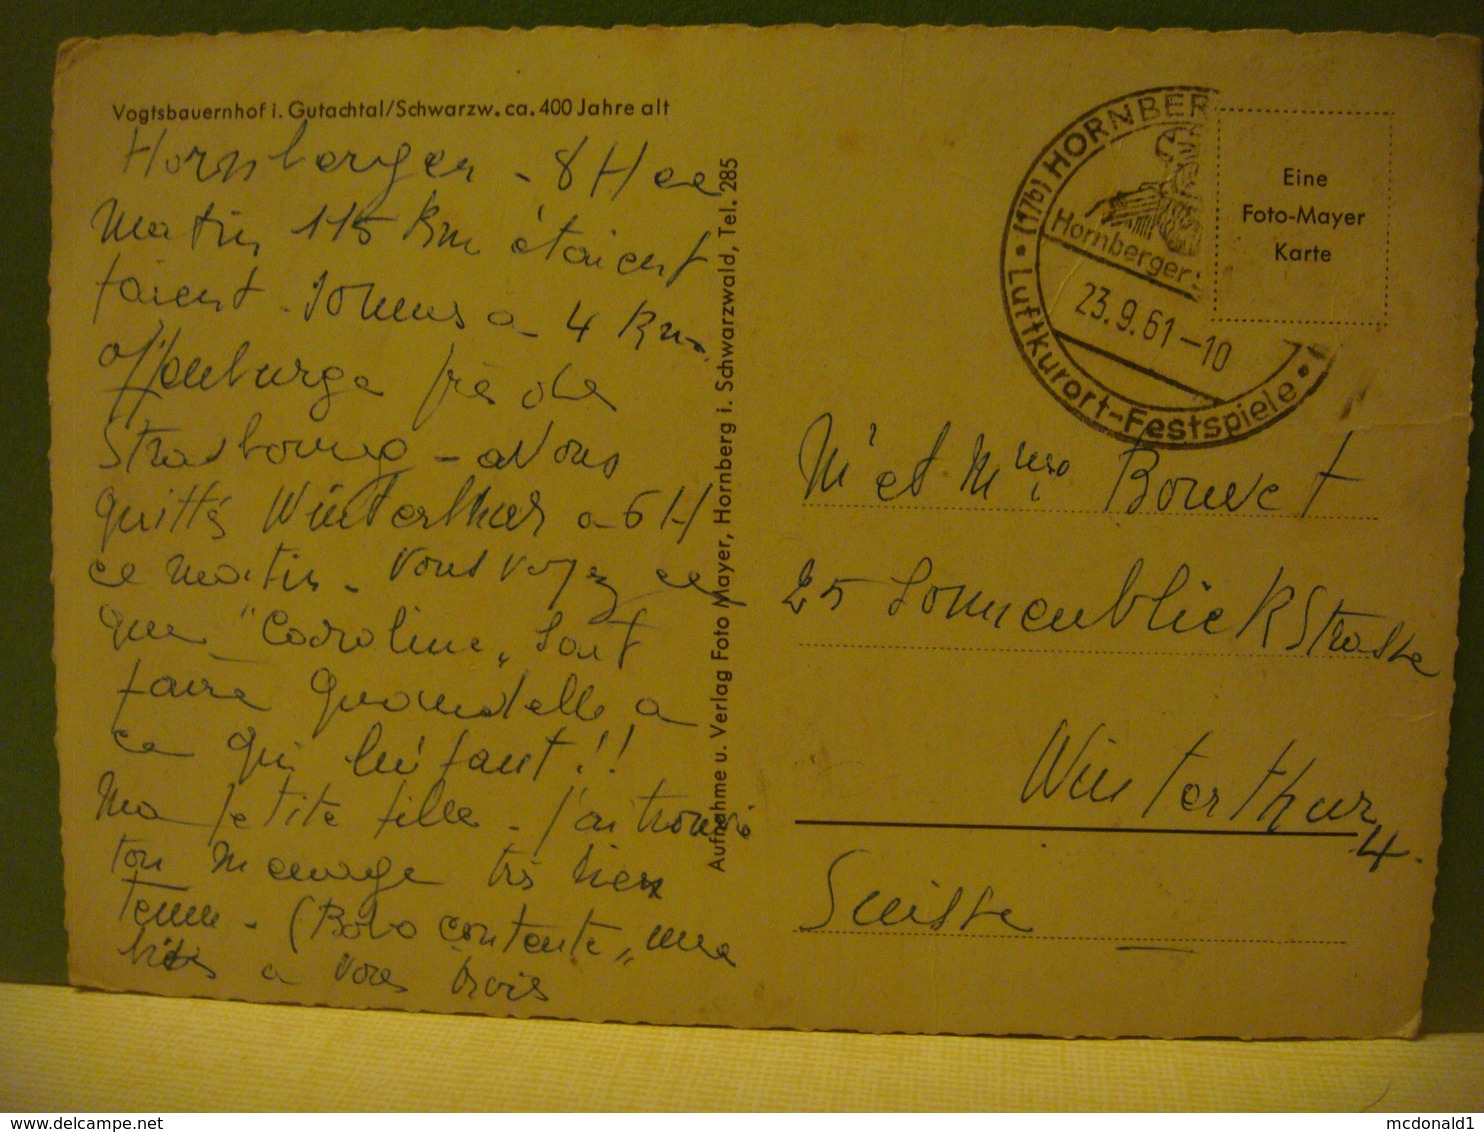 Vogtsbauernhof i. Gutachtal/Schwarzw. ca. 400 Jahre alt
Hornberger - 8 H ce
Matin 115 Km étaient
faient - Sommes a 4 Km
Offenburge près de
Strasbourg - avons
quittés Winterthur a 6 H
ce matin - Vous voyez ce
que "Caroline" sait
faire quand elle a
ce qui lui faut!!
Ma petite fille - j'ai trouvé
ton menage très bien
tenue - (Bobo contente" une
bises a vous trois
Aufnahme u. Verlag Foto Mayer, Hornberg i. Schwarzwald, Tel. 285
(17b) HORNBER
Hornberger
23.9.61-10
Luftkurort-Festspiele
Eine
Foto-Mayer
Karte
Mr et Mme Bouvet
25 Sonnenblickstrasse
Winterthur
4.
Suisse
mcdonald1